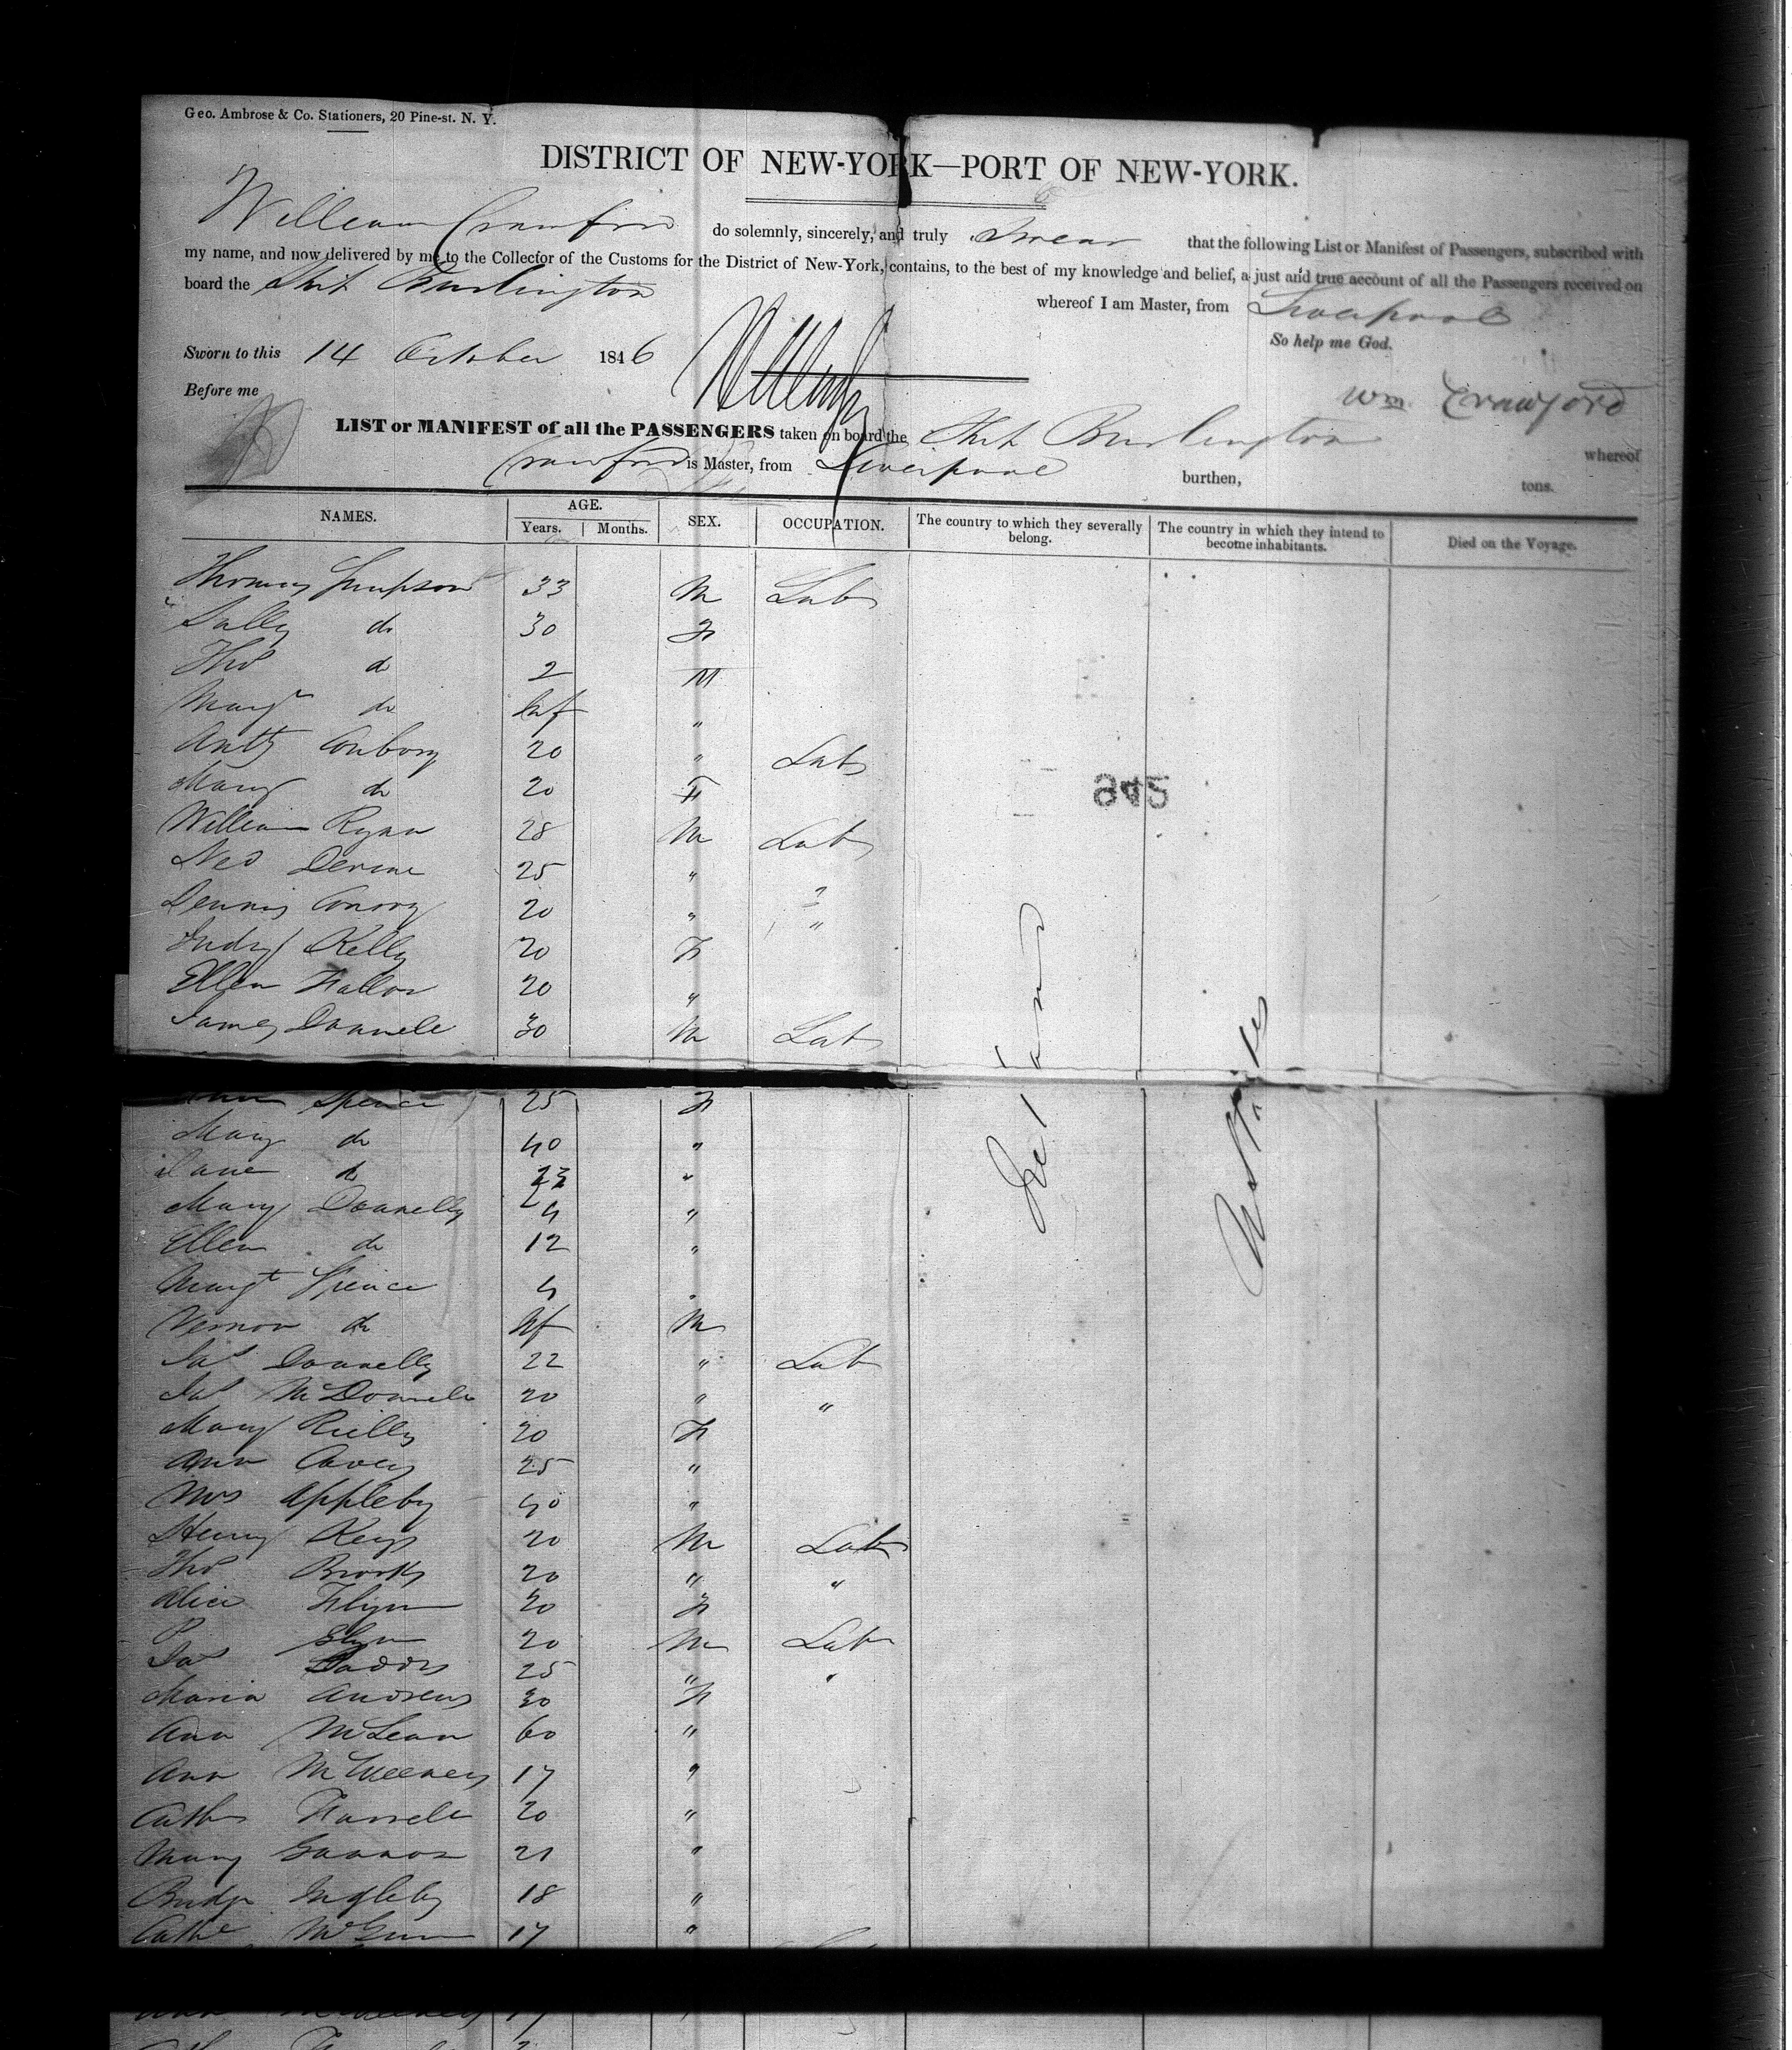 Geo. Ambrose & Co. Stationers, 20 Pine-st. N. Y.
DISTRICT OF NEW-YORK—PORT OF NEW-YORK.
William Crawford do solemnly, sincerely, and truly Swear that the following List or Manifest of Passengers, subscribed with
my name, and now delivered by me to the Collector of the Customs for the District of New-York, contains, to the best of my knowledge and belief, a just and true account of all the Passengers received on
board the Ship Burlington whereof I am Master, from Liverpool
So help me God.
Sworn to this 14 October 1846
Before me
Wm Crawford
LIST or MANIFEST of all the PASSENGERS taken on board the Ship Burlington whereof
Crawford is Master, from Liverpool burthen, tons.
NAMES. AGE. Years. Months. SEX. OCCUPATION. The country to which they severally belong. The country in which they intend to become inhabitants. Died on the Voyage.
Thomas Simpson 33 M Lab
Sally do 30 F
Thos do 2 M
Margt do Inf "
Anty Conboy 20 " Lab
Mary do 20 F
William Ryan 28 M Lab
Ned Devine 25 " "
Dennis Conroy 20 " "
Judy Kelly 20 F
Ellen Fallon 20 "
James Donnele 30 M Lab
Spence 25 F
Mary do 40 "
Jane do 23 "
Mary Donnelly "
Ellen do 12 "
Margt Spence 4
Vernon do Inf M
Jas Donnelly 22 " Lab
Jas McDonnele 20 " "
Mary Rielly 20 F
Ann Cavey 25 "
Mrs Appleby 40 "
Henry Keys 20 M Lab
Thos Brooks 20 " "
Alice Flynn 20 F
P 20 M Lab
Jas 25 " "
Maria Andrews 30 F
Ann McLean 60 "
Ann McWeeney 17 "
Cath Farrele 20 "
Mary Gannon 21 "
Bridgt Ingleby 18 "
Cathe McGunn 17 "
Ireland
U States
945